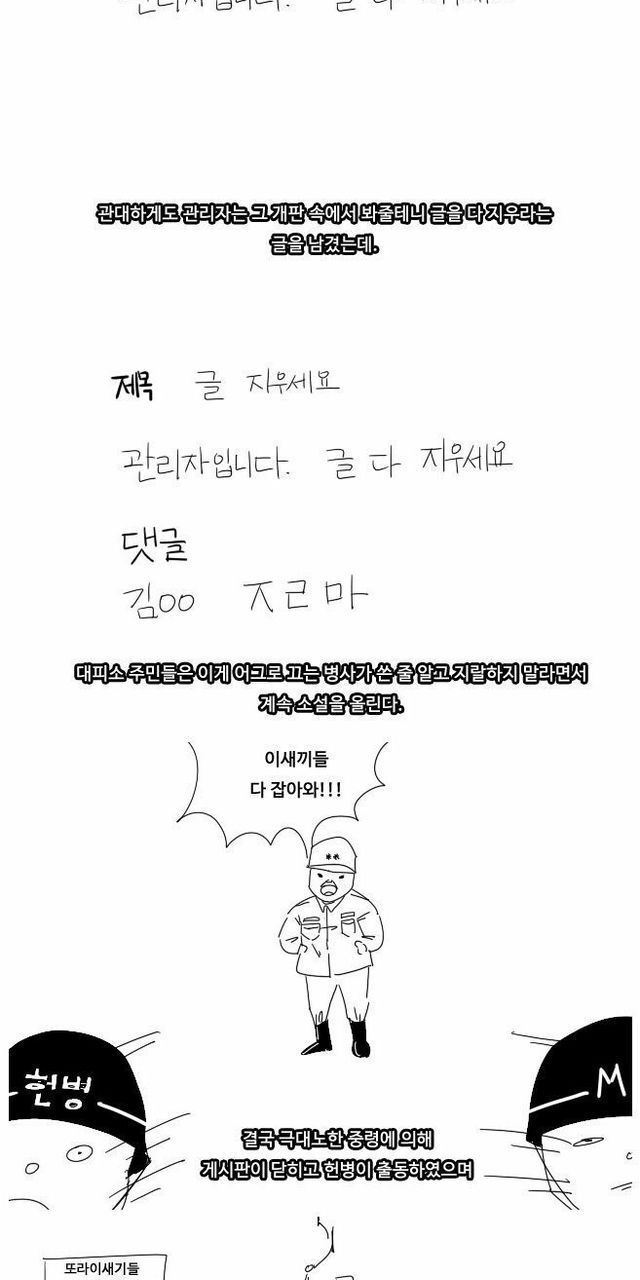 관리자입니다. 글 다 지우세요
관대하게도 관리자는 그 개판 속에서 봐줄테니 글을 다 지우라는
글을 남겼는데.
제목 글 지우세요
관리자입니다. 글 다 지우세요
댓글
김OO ㅈㄹ마
대피소 주민들은 이게 어그로 끄는 병사가 쓴 줄 알고 지랄하지 말라면서
계속 소설을 올린다.
이새끼들
다 잡아와!!!
헌병
M
결국 극대노한 중령에 의해
게시판이 닫히고 헌병이 출동하였으며
또라이새기들